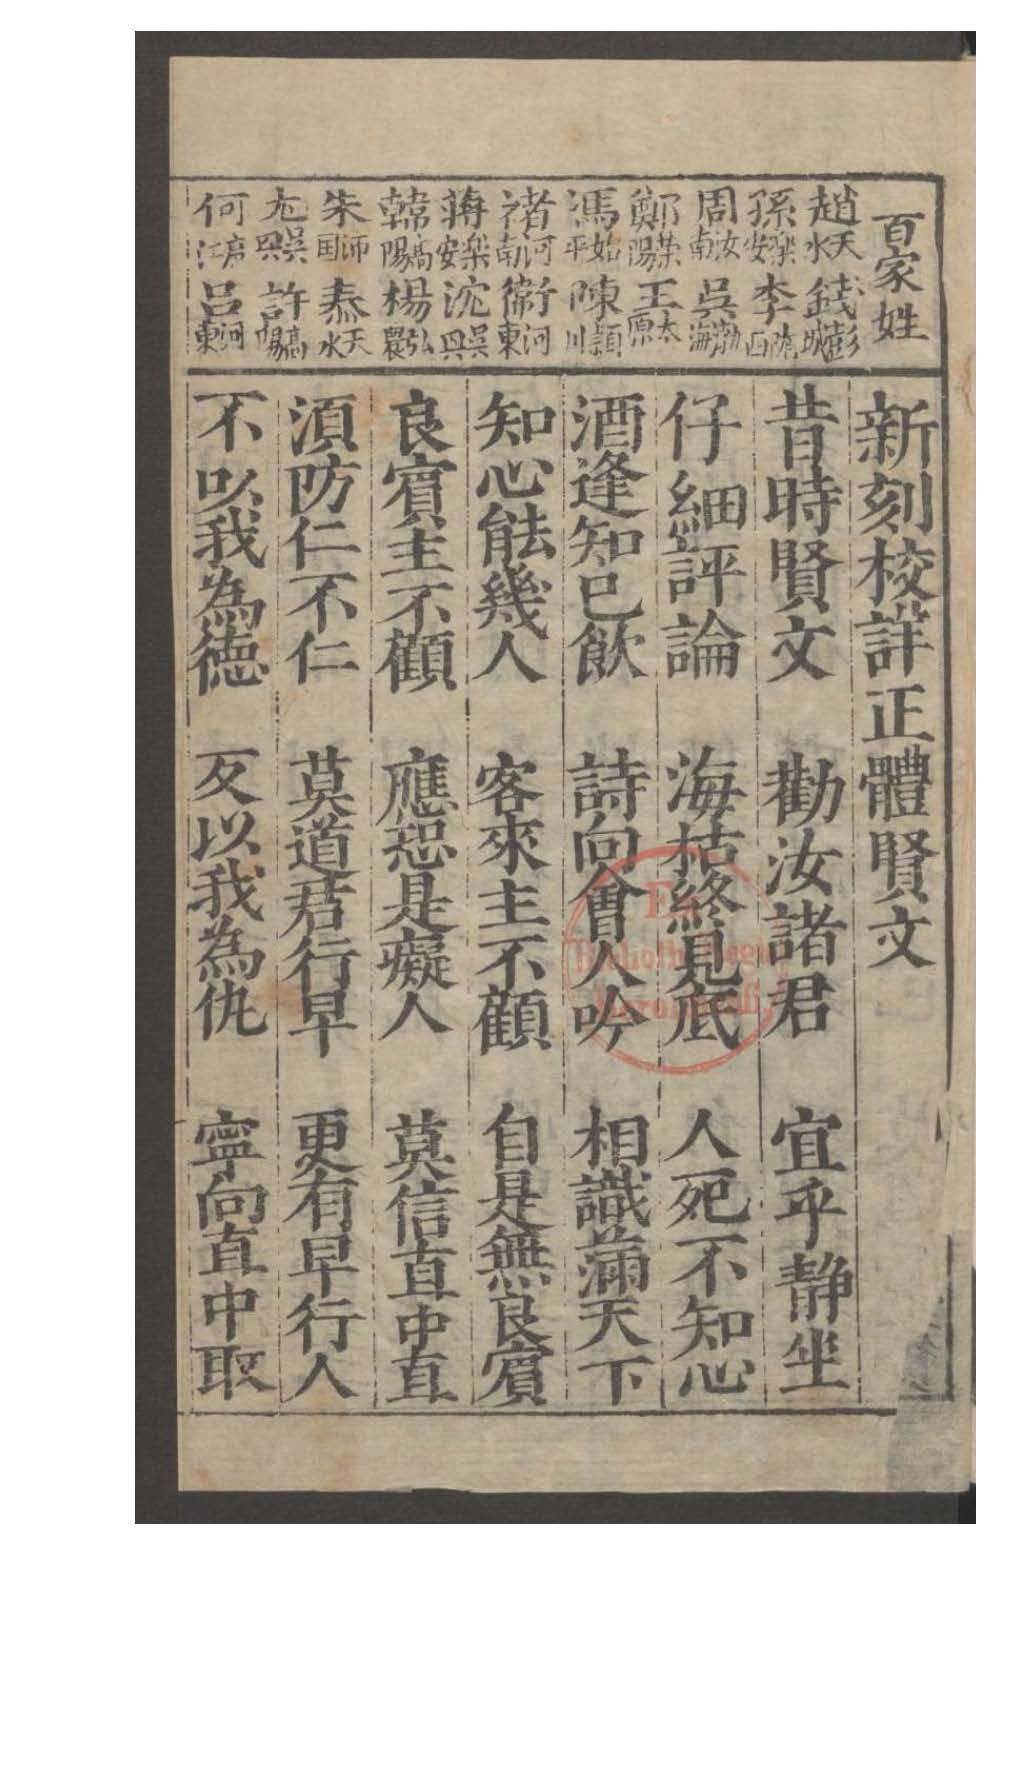 百家姓
趙天水錢彭城
孫楽安李陇西
周汝南吳渤海
鄭荣陽王太原
馮始平陳穎川
褚河南衛河東
蔣楽安沈吳興
韓高陽楊弘農
朱沛国秦天水
尤吳興許高陽
何庐江呂河東
新刻校詳正體賢文
昔時賢文 勸汝諸君 宜乎靜坐
仔細評論 海枯終見底 人死不知心
酒逢知已飲 詩向會人吟 相識滿天下
知心能幾人 客來主不顧 自是無良賓
良賓主不顧 應恐是癡人 莫信直中直
須防仁不仁 莫道君行早 更有早行人
不以我為德 反以我為仇 寧向直中取
Ex
Biblioth. Regia
Berolinensi.